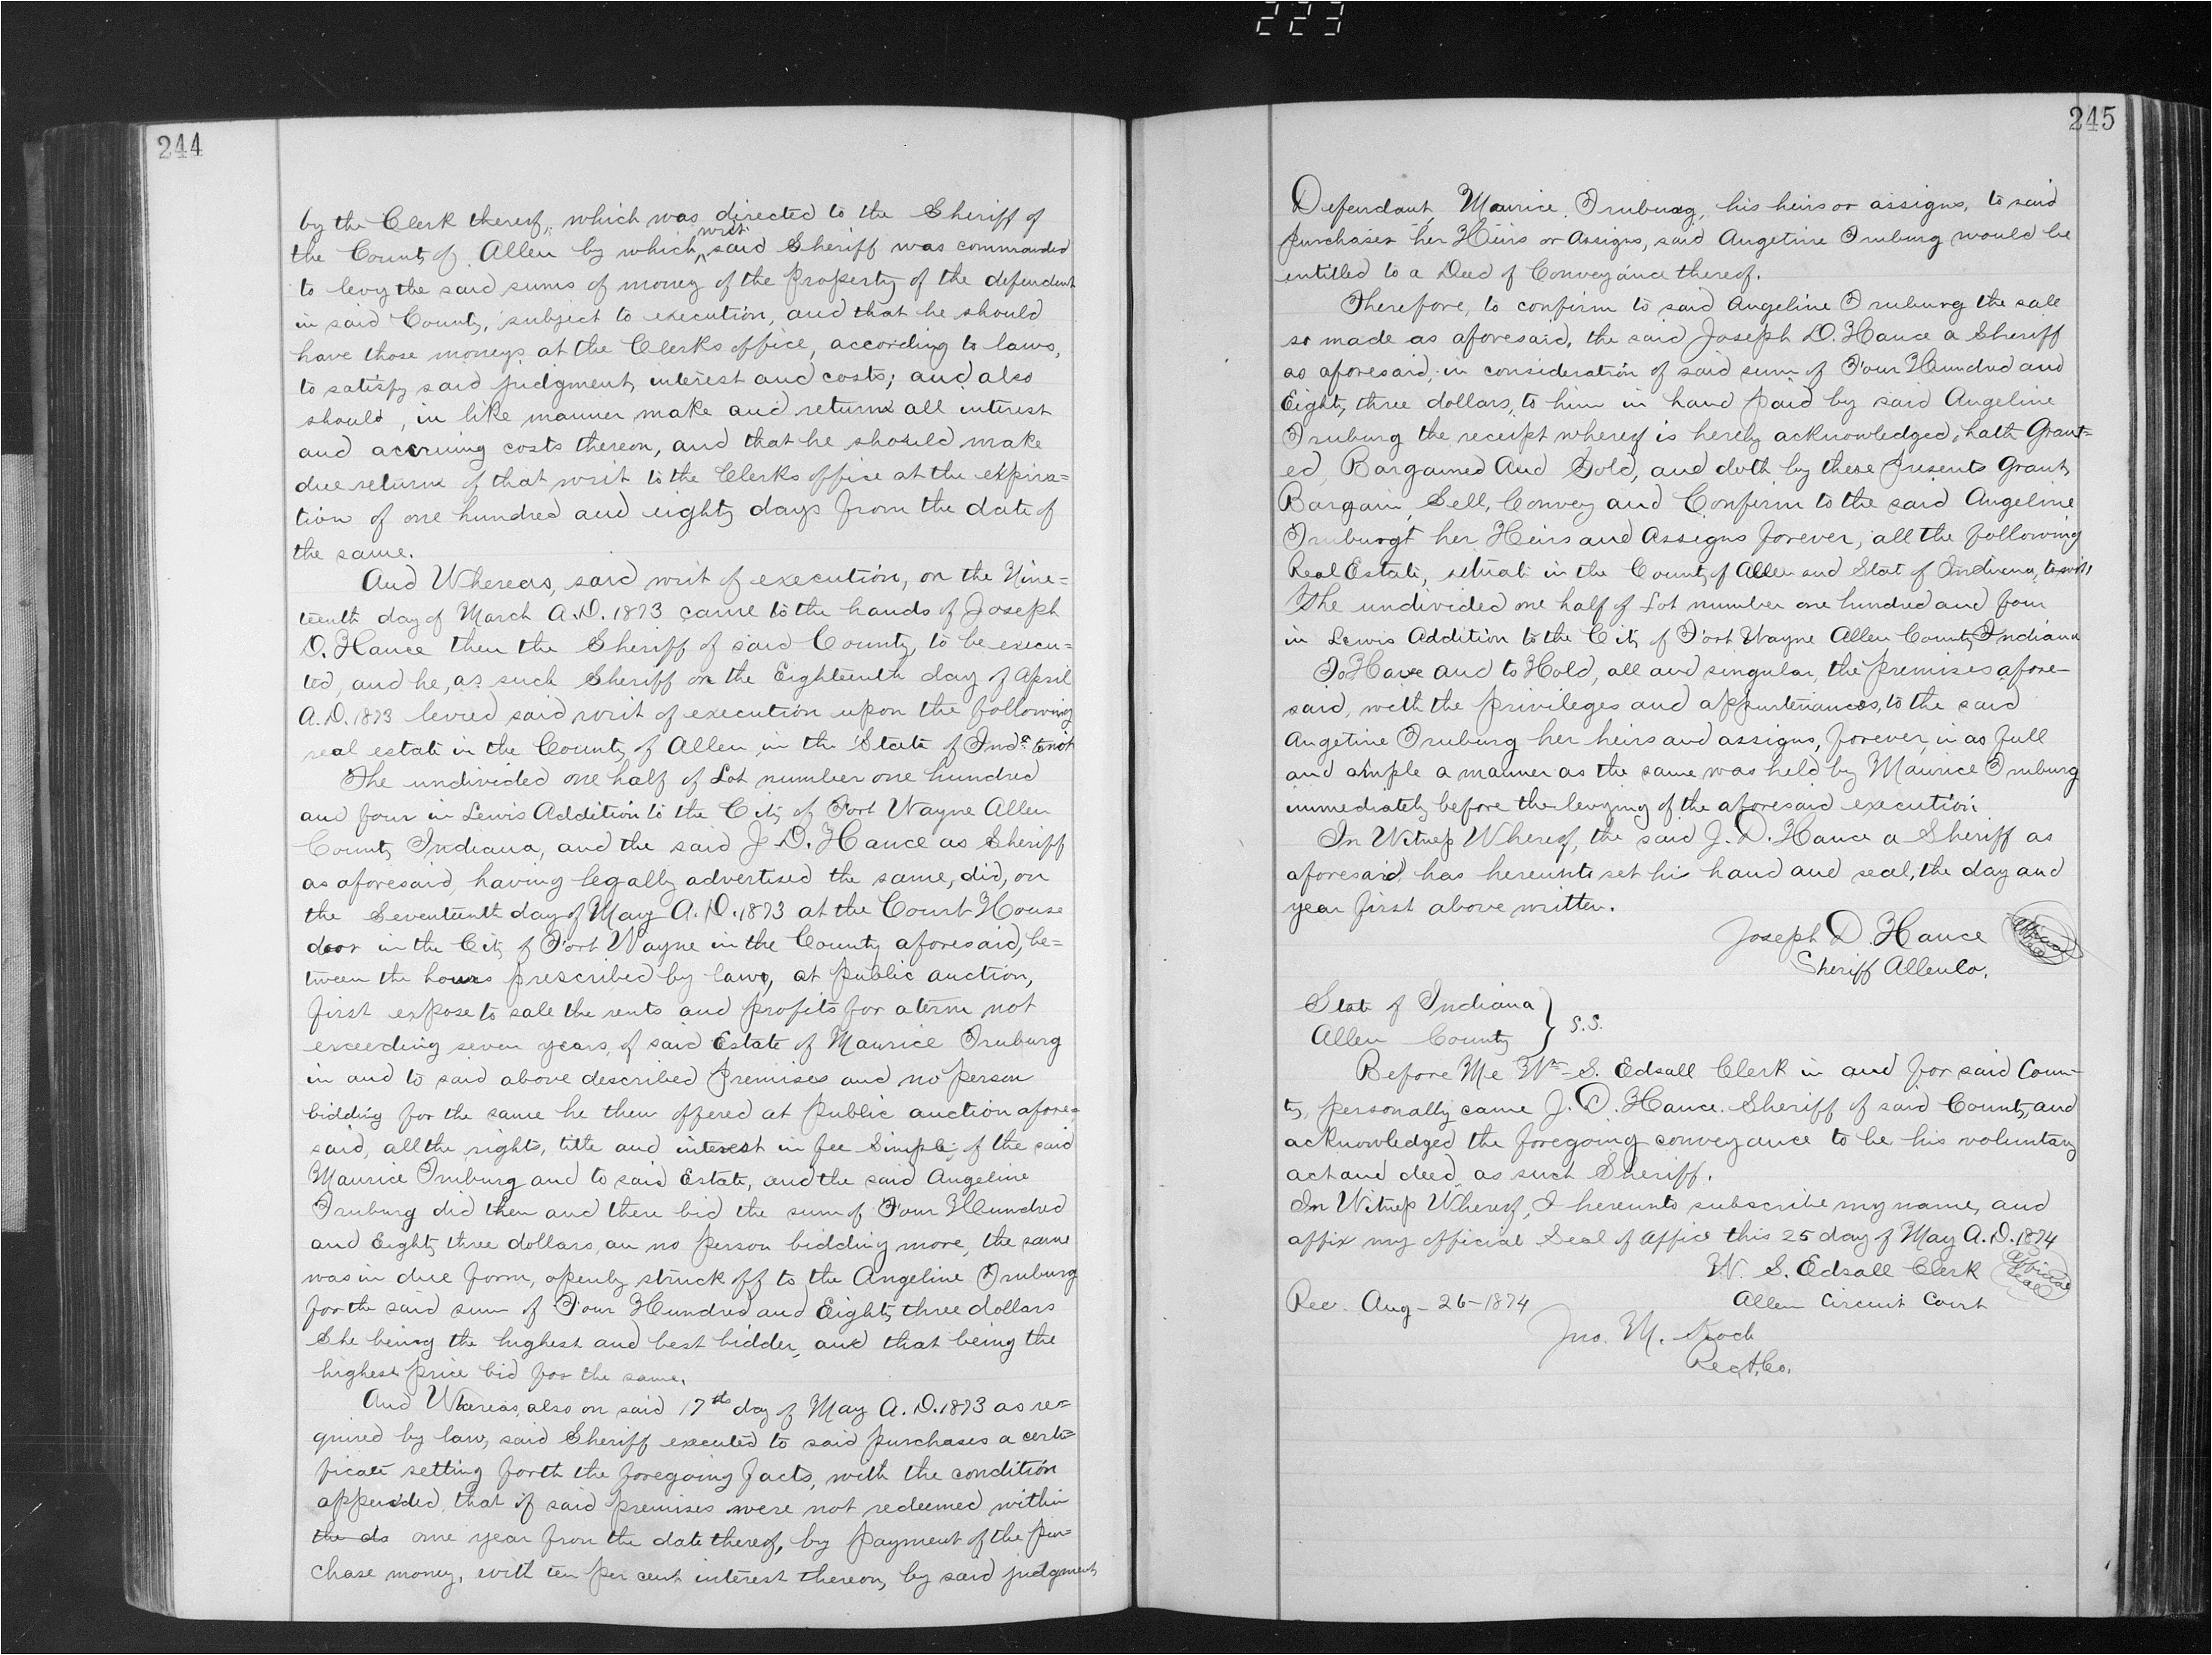 223
244
by the Clerk thereof, which was directed to the Sheriff of
the County of Allen by which writ said Sheriff was commanded
to levy the said sums of money of the Property of the defendent
in said County, subject to execution, and that he should
have those moneys at the Clerks office, according to laws,
to satisfy said judgment, interest and costs; and also
should, in like manner make and return all interest
and accruing costs thereon, and that he should make
due return of that writ to the Clerks office at the expira=
tion of one hundred and eighty days from the date of
the same.
And Whereas, said writ of execution, on the Nine=
teenth day of March A.D. 1873 came to the hands of Joseph
D. Hance then the Sheriff of said County, to be execu=
ted, and he, as such Sheriff on the Eighteenth day of April
A.D. 1873 levied said writ of execution upon the following
real estate in the County of Allen in the State of Inda towit
The undivided one half of Lot number one hundred
and four in Lewis Addition to the City of Fort Wayne Allen
County Indiana, and the said J. D. Hance as Sheriff
as aforesaid, having legally advertised the same, did, on
the Seventeenth day of May A.D. 1873 at the Court House
door in the City of Fort Wayne in the County aforesaid, be=
tween the hours prescribed by law, at public auction,
first expose to sale the rents and profits for a term not
exceeding seven years, of said Estate of Maurice Truburg
in and to said above described Premises and no person
bidding for the same he then offered at public auction afore=
said, all the rights, title and interest in fee Simple, of the said
Maurice Truburg and to said Estate, and the said Angeline
Truburg did then and there bid the sum of Four Hundred
and Eighty three dollars, an no person bidding more, the same
was in due form, openly struck off to the Angeline Truburg
for the said sum of Four Hundred and Eighty three dollars
She being the highest and best bidder, and that being the
highest price bid for the same.
And Whereas, also on said 17th day of May A.D. 1873 as re=
quired by law, said Sheriff executed to said purchases a certi=
ficate setting forth the foregoing facts, with the condition
appended, that if said premises were not redeemed within
the da one year from the date thereof, by payment of the pur=
chase money, with ten per cent interest thereon, by said judgment
245
Defendant, Maurice Truburg, his heirs or assigns, to said
purchaser her Heirs or Assigns, said Angetine Truburg would be
entitled to a Deed of Conveyance thereof.
Therefore, to confirm to said Angeline Truburg the sale
so made as aforesaid, the said Joseph D. Hance a Sheriff
as aforesaid, in consideration of said sum of Four Hundred and
Eighty three dollars, to him in hand paid by said Angeline
Truburg the receipt whereof is hereby acknowledged, hath Grant=
ed, Bargained And Sold, and doth by these Presents Grant,
Bargain, Sell, Convey and Confirm to the said Angeline
Truburgt her Heirs and Assigns forever, all the following
Real Estate, situate in the County of Allen and Stat of Indiana, to wit,
The undivided one half of Lot number one hundred and four
in Lewis Addition to the City of Fort Wayne Allen County Indiana
To Have and to Hold, all and singular, the premises afore-
said, with the privileges and appurtenances, to the said
Angetine Truburg her heirs and assigns, forever, in as full
and ample a manner as the same was held by Maurice Truburg
immediately before the levying of the aforesaid execution
In Witness Whereof, the said J. D. Hance a Sheriff as
aforesaid, has hereunto set his hand and seal, the day and
year first above written.
Joseph D. Hance Official Seal
Sheriff Allen Co.
State of Indiana
Allen County } S.S.
Before Me Wm S. Edsall Clerk in and for said Coun-
ty, personally came J. D. Hance Sheriff of said County, and
acknowledged the foregoing conveyance to be his voluntary
act and deed, as such Sheriff.
In Witness Whereof, I hereunto subscribe my name, and
affix my official Seal of Office this 25 day of May A.D. 1874
W. S. Edsall Clerk Official Seal
Allen Circuit Court
Rec. Aug-26-1874
Jno. M. Koch
Rec A. Co.